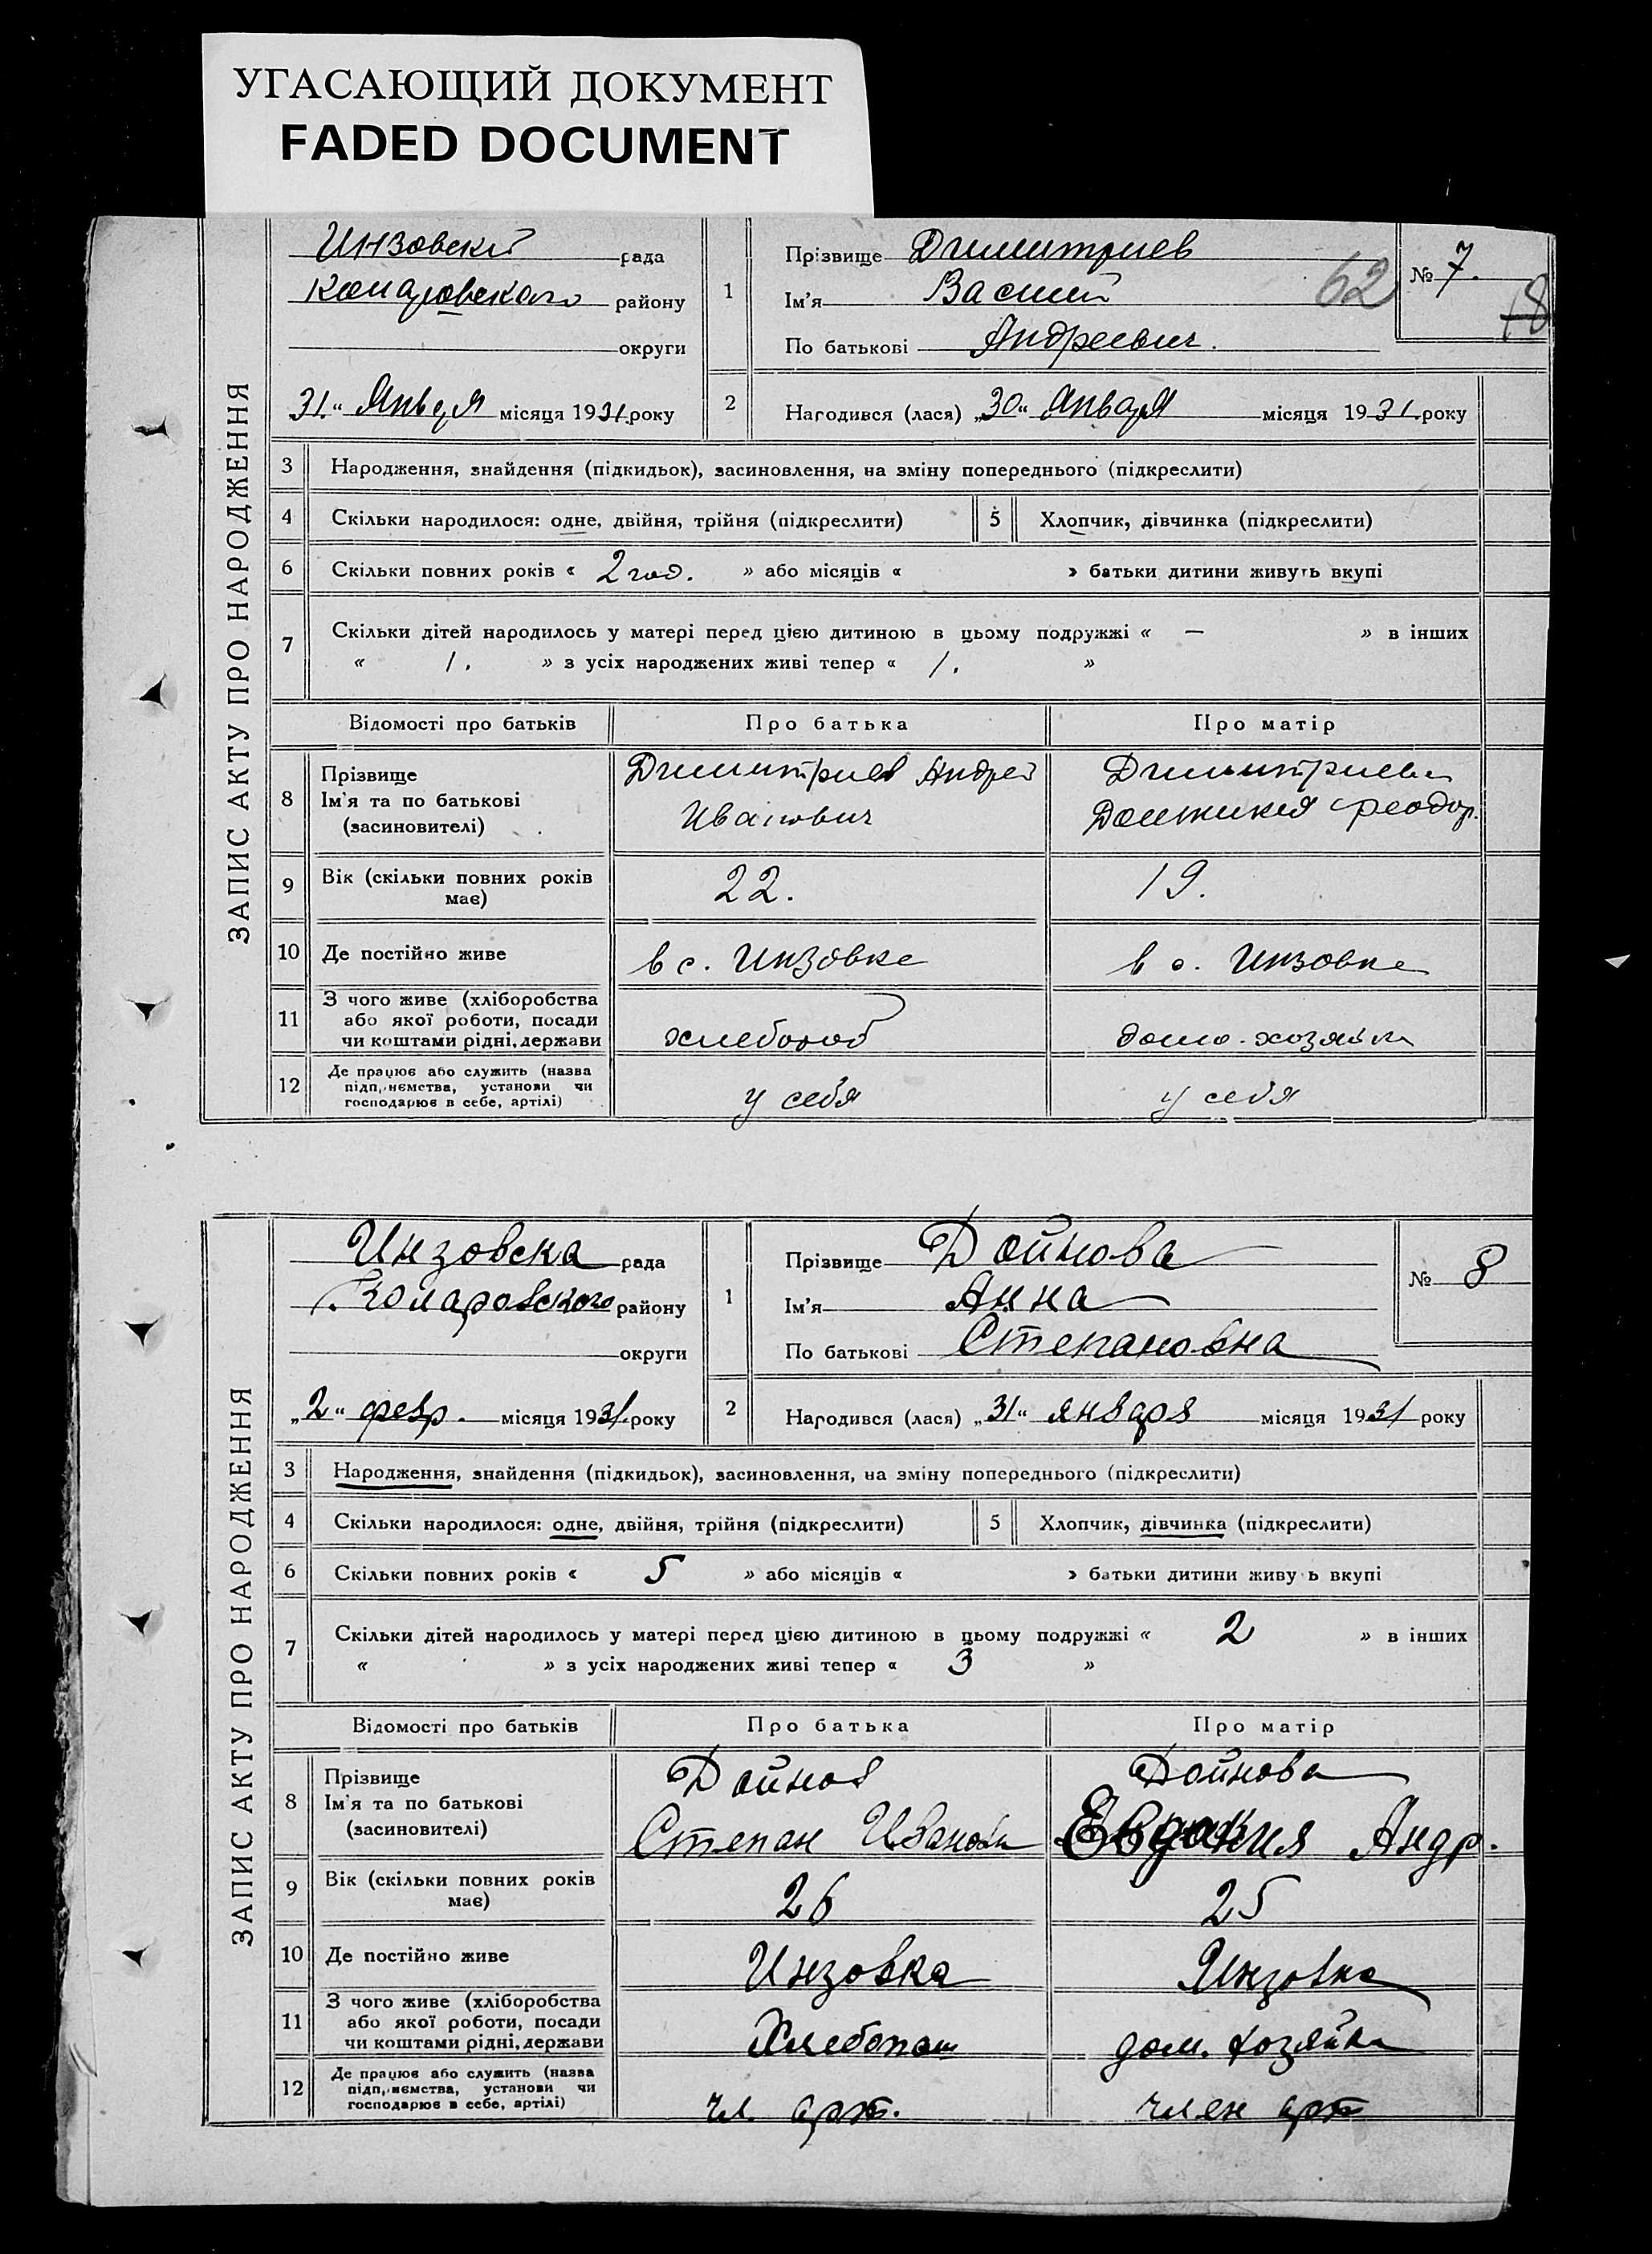 УГАСАЮЩИЙ ДОКУМЕНТ
FADED DOCUMENT
ЗАПИС АКТУ ПРО НАРОДЖЕННЯ
Инзовской рада
Комаровского району
округи
31 " Января місяця 1931 року
1
Прізвище Димитриев
Ім'я Василий
По батькові Андреевич.
62
№ 7.
18
2
Народився (лася) „30" Января місяця 1931 року
3 Народження, знайдення (підкидьок), засиновлення, на зміну попереднього (підкреслити)
4 Скільки народилося: одне, двійня, трійня (підкреслити)
5 Хлопчик, дівчинка (підкреслити)
6 Скільки повних років « 2 год. » або місяців « » батьки дитини живуть вкупі
7 Скільки дітей народилось у матері перед цією дитиною в цьому подружжі « — » в інших
« 1. » з усіх народжених живі тепер « 1. »
Відомості про батьків Про батька Про матір
8 Прізвище
Ім'я та по батькові
(засиновителі)
Димитриев Андрей
Иванович
Димитриева
Феодор.
9 Вік (скільки повних років
має)
22. 19.
10 Де постійно живе в с. Инзовке в с. Инзовке
11 З чого живе (хліборобства
або якої роботи, посади
чи коштами рідні, держави
хлебороб домо-хозяйка
12 Де працює або служить (назва
підприємства, установи чи
господарює в себе, артілі)
у себя у себя
ЗАПИС АКТУ ПРО НАРОДЖЕННЯ
Инзовска рада
Комаровского району
округи
„2" февр. місяця 1931. року
1
Прізвище Дойнова
Ім'я Анна
По батькові Степановна
№ 8
2
Народився (лася) „31" января місяця 1931 року
3 Народження, знайдення (підкидьок), засиновлення, на зміну попереднього (підкреслити)
4 Скільки народилося: одне, двійня, трійня (підкреслити)
5 Хлопчик, дівчинка (підкреслити)
6 Скільки повних років « 5 » або місяців « » батьки дитини живу ь вкупі
7 Скільки дітей народилось у матері перед цією дитиною в цьому подружжі « 2 » в інших
« » з усіх народжених живі тепер « 3 »
Відомості про батьків Про батька Про матір
8 Прізвище
Ім'я та по батькові
(засиновителі)
Дойнов
Степан Иванови
Дойнова
Евдокия Андр.
9 Вік (скільки повних років
має)
26 25
10 Де постійно живе Инзовка Инзовка
11 З чого живе (хліборобства
або якої роботи, посади
чи коштами рідні, держави
Хлебопаш дом. хозяйка
12 Де працює або служить (назва
підприємства, установи чи
господарює в себе, артілі)
чл. арт. член арт